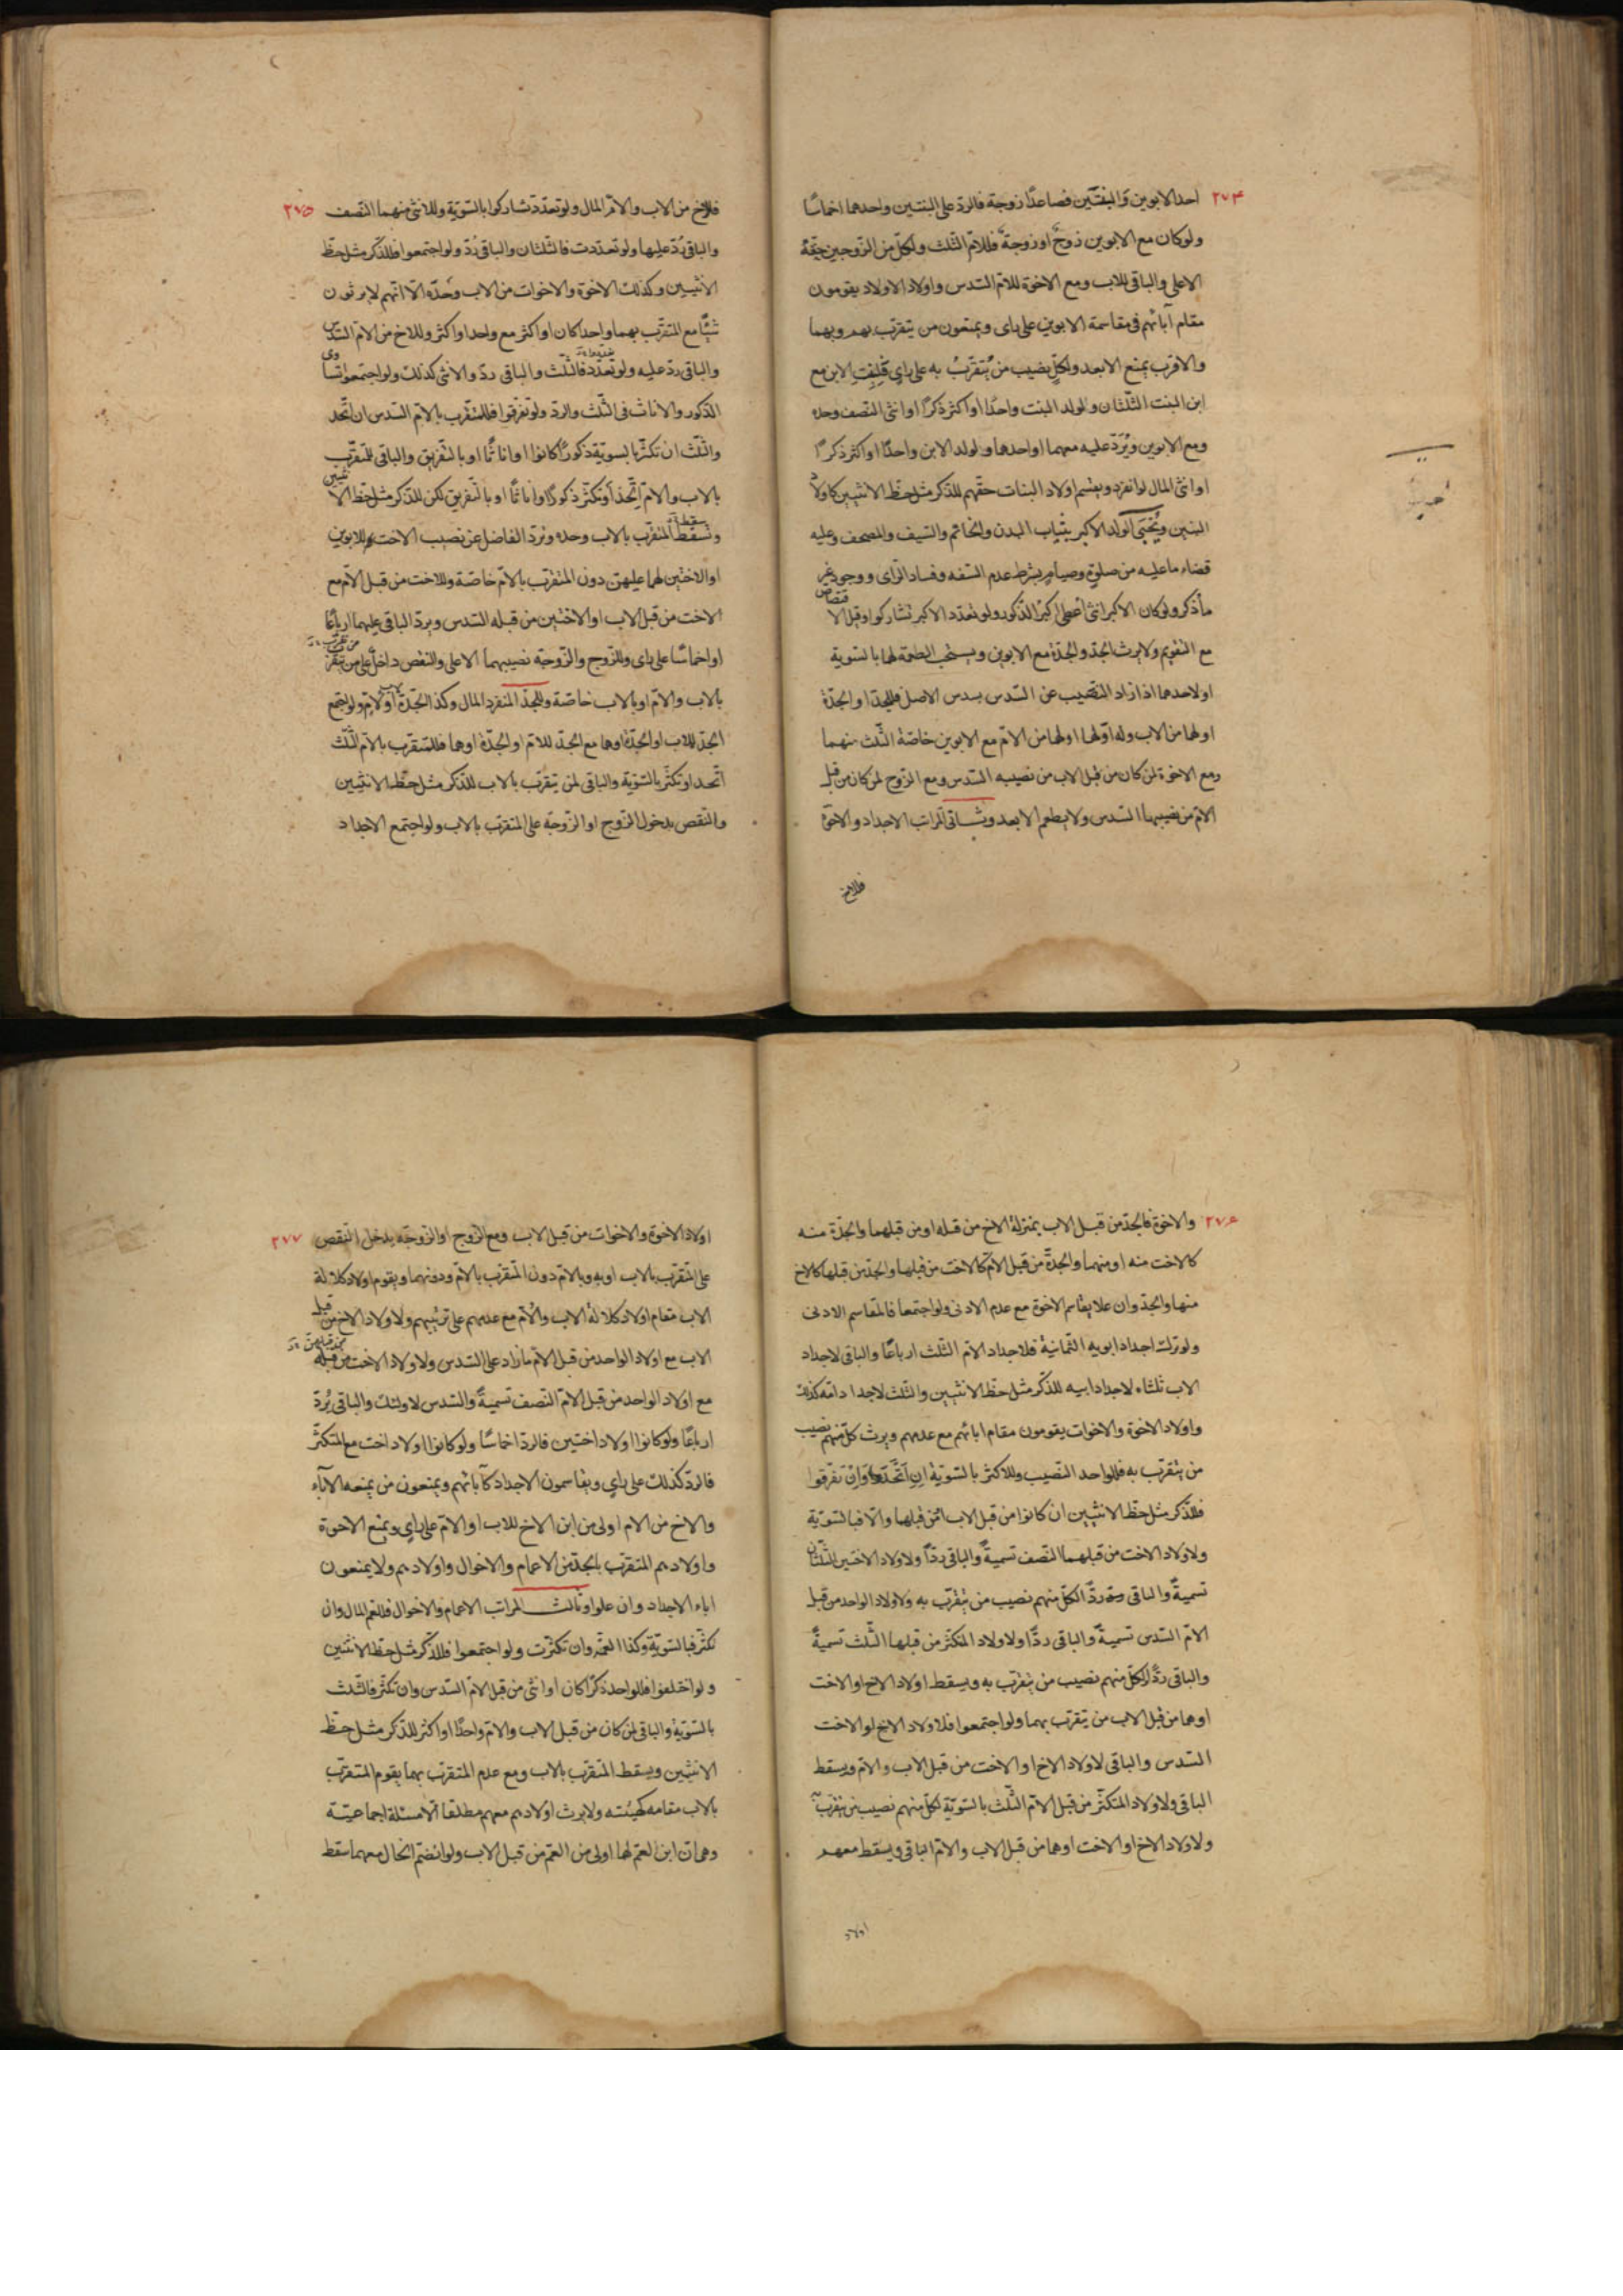 ٢٧٤
احد الابوين والبنتين فصاعدًا زوجة فالرد على البنتين واحدهما اخماسًا
ولوكان مع الابوين زوجٌ او زوجةٌ فللامّ الثلث ولكلّ من الزوجين حصّة
الاعلى والباقى للاب ومع الاخوة للامّ السّدس واولاد الاولاد يقومون
مقام آبائهم فى مقاسمة الابوين على راى ويمنعون من يتقرّب بهم وبهما
والاقرب يمنع الابعد ولكلٍّ نصيب من يُتقرّبُ به على راىٍ فلبنت الابن مع
ابن البنت الثلثان ولولد البنت واحدًا او اكثر ذكرًا او انثى النّصف وحده
ومع الابوين ويُرَدّ عليه معهما او احدهما ولولد الابن واحدًا او اكثر ذكرًا
او انثى المال لو انفرد ويقسم اولاد البنات حقّهم للذّكر مثل حظّ الانثيين كاولاد
البنين ويُحبَى الولد الاكبر بثياب البدن والخاتم والسّيف والمصحف وعليه
قضاء ما عليه من صلوةٍ وصيامٍ بشرط عدم السّفه وفساد الرّاى ووجود غير
ما ذكر ولوكان الاكبر انثى أُعطى اكبرُ الذّكور ولو تعدّد الاكبر تشاركوا وقيل الاقتصاص
مع التّقويم ولا يرث الجدّ والجدّة مع الابوين ويستحب الطعمة لهما بالسّوية
او لاحدهما اذا زاد النّصيب عن السّدس بسدس الاصل فللجدّ او الجدّة
او لهما من الاب وله او لها او لهما من الامّ مع الابوين خاصّة الثّلث منهما
ومع الاخوة لمن كان من قبل الاب من نصيبه السّدس ومع الزّوج لمن كان من قبل
الامّ من نصيبها السّدس ولا يطعم الابعد وثانى المراتب الاجداد والاخوة
فللاخ
٢٧٥
فللاخ من الاب والامّ المال ولو تعدّد تشاركوا بالسّوية وللانثى منهما النّصف
والباقى رُدّ عليها ولو تعدّدت فالثّلثان والباقى رُدّ ولو اجتمعوا فللذّكر مثل حظّ
الانثيين وكذلك الاخوة والاخوات من الاب وحده الّا انّهم لا يرثون
شيئًا مع المتقرّب بهما واحدا كان او اكثر مع واحد او اكثر وللاخ من الامّ السّدس
والباقى ردّ عليه ولو تعدّد فالثّلث والباقى ردّ والانثى كذلك ولو اجتمعوا تساوى
الذّكور والاناث فى الثّلث والردّ ولو تفرّقوا فللمتقرّب بالامّ السّدس ان اتّحد
والثّلث ان تكثّر بالسّويّة ذكورًا كانوا او اناثًا او بالتّفريق والباقى للمتقرّب
بالاب والامّ اتّحد او تكثّر ذكورًا او اناثًا او بالتّفريق لكن للذّكر مثل حظّ الانثيين
وسقط المتقرّب بالاب وحده ويردّ الفاضل عن نصيب الاخت للابوين
او الاختين لهما عليهنّ دون المتقرّب بالامّ خاصّة وللاخت من قبل الامّ مع
الاخت من قبل الاب او الاختين من قبله السّدس ويردّ الباقى عليهما ارباعًا
او اخماسًا على راى وللزّوج والزّوجة نصيبهما الاعلى والنّقص داخل على من يتقرّب
بالاب والامّ او بالاب خاصّة وللجدّ المنفرد المال وكذا الجدّة لاب او لامّ ولو اجتمع
الجدّ للاب او الجدّة او هما مع الجدّ للامّ او الجدّة او هما فللمتقرّب بالامّ الثّلث
اتّحد او تكثّر بالسّوية والباقى لمن يتقرّب بالاب للذّكر مثل حظّ الانثيين
والنّقص بدخول الزّوج او الزّوجة على المتقرّب بالاب ولو اجتمع الاجداد
٢٧٦
والاخوة فالجدّ من قبل الاب بمنزلة الاخ من قبله او من قبلهما والجدّة منه
كالاخت منه او منهما والجدّة من قبل الامّ كالاخت من قبلها والجدّ من قبلها كالاخ
منها والجدّ وان علا يقاسم الاخوة مع عدم الادنى ولو اجتمعا فالمقاسم الادنى
ولو ترك اجداد ابويه الثّمانية فلاجداد الامّ الثّلث ارباعًا والباقى لاجداد
الاب ثلثاه لاجداد ابيه للذّكر مثل حظّ الانثيين والثّلث لاجداد امّه كذلك
واولاد الاخوة والاخوات يقومون مقام ابائهم مع عدمهم ويرث كلّ منهم نصيب
من يتقرّب به فللواحد النّصيب وللاكثر بالسّوية ان اتّحدوا وان تفرّقوا
فللذّكر مثل حظّ الانثيين ان كانوا من قبل الاب او من قبلهما والّا فبالسّوية
ولاولاد الاخت من قبلهما النّصف تسميةً والباقى ردًّا ولاولاد الاختين الثّلثان
تسميةً والباقى ردًّا لكلّ منهم نصيب من يتقرّب به ولاولاد الواحد من قبل
الامّ السّدس تسميةً والباقى ردًّا ولاولاد المتكثّر من قبلها الثّلث تسميةً
والباقى ردًّا لكلّ منهم نصيب من يتقرّب به ويسقط اولاد الاخ او الاخت
او هما من قبل الاب من يتقرّب بهما ولو اجتمعوا فلاولاد الاخ او الاخت
السّدس والباقى لاولاد الاخ او الاخت من قبل الاب والامّ ويسقط
الباقى ولاولاد المتكثّر من قبل الامّ الثّلث بالسّويّة لكلّ منهم نصيب من يتقرّب به
ولاولاد الاخ او الاخت او هما من قبل الاب والامّ الباقى ويسقط معهم
اولاد
٢٧٧
اولاد الاخوة والاخوات من قبل الاب ومع الزّوج او الزّوجة يدخل النّقص
على المتقرّب بالاب او به وبالامّ دون المتقرّب بالامّ ودونهما ويقوم اولاد كلالة
الاب مقام اولاد كلالة الاب والامّ مع عدمهم على ترتيبهم ولاولاد الاخ من قبل
الاب مع اولاد الواحد من قبل الامّ ما زاد على السّدس ولاولاد الاخت من قبله
مع اولاد الواحد من قبل الامّ النّصف تسميةً والسّدس لاولئك والباقى يُردّ
ارباعًا ولو كانوا اولاد اختين فالردّ اخماسًا ولو كانوا اولاد اخت مع المتكثّر
فالردّ كذلك على راىٍ ويقاسمون الاجداد كآبائهم ويمنعون من يمنعه الآباء
والاخ من الام اولى من ابن الاخ للاب او الامّ على راىٍ ويمنع الاخوة
واولادهم المتقرّب بالجدّ من الاعمام والاخوال واولادهم ولا يمنعون
اباء الاجداد وان علوا وثالث المراتب الاعمام والاخوال فللعم المال وان
تكثّر فبالسّويّة وكذا العمّة وان تكثّرت ولو اجتمعوا فللذّكر مثل حظّ الانثيين
ولو اختلفوا فللواحد ذكرًا كان او انثى من قبل الامّ السّدس وان تكثّر فالثّلث
بالسّويّة والباقى لمن كان من قبل الاب والامّ واحدًا او اكثر للذّكر مثل حظّ
الانثيين ويسقط المتقرّب بالاب ومع عدم المتقرّب بهما يقوم المتقرّب
بالاب مقامه كهيئته ولا يرث اولادهم معهم مطلقا الّا مسئلة اجماعيّة
وهى ان ابن العم لهما اولى من العمّ من قبل الاب ولو انضمّ الخال معهما سقط